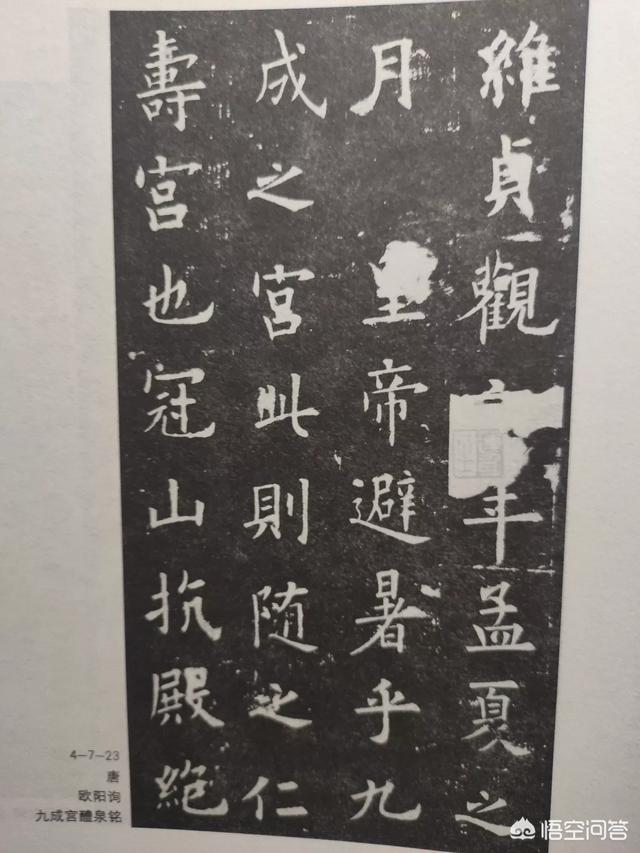 維貞觀年孟夏之
月皇帝避暑乎九
成之宮此則随之仁
壽宮也冠山抗殿絕
4-7-23
唐
欧阳询
九成宫醴泉铭
悟空问答